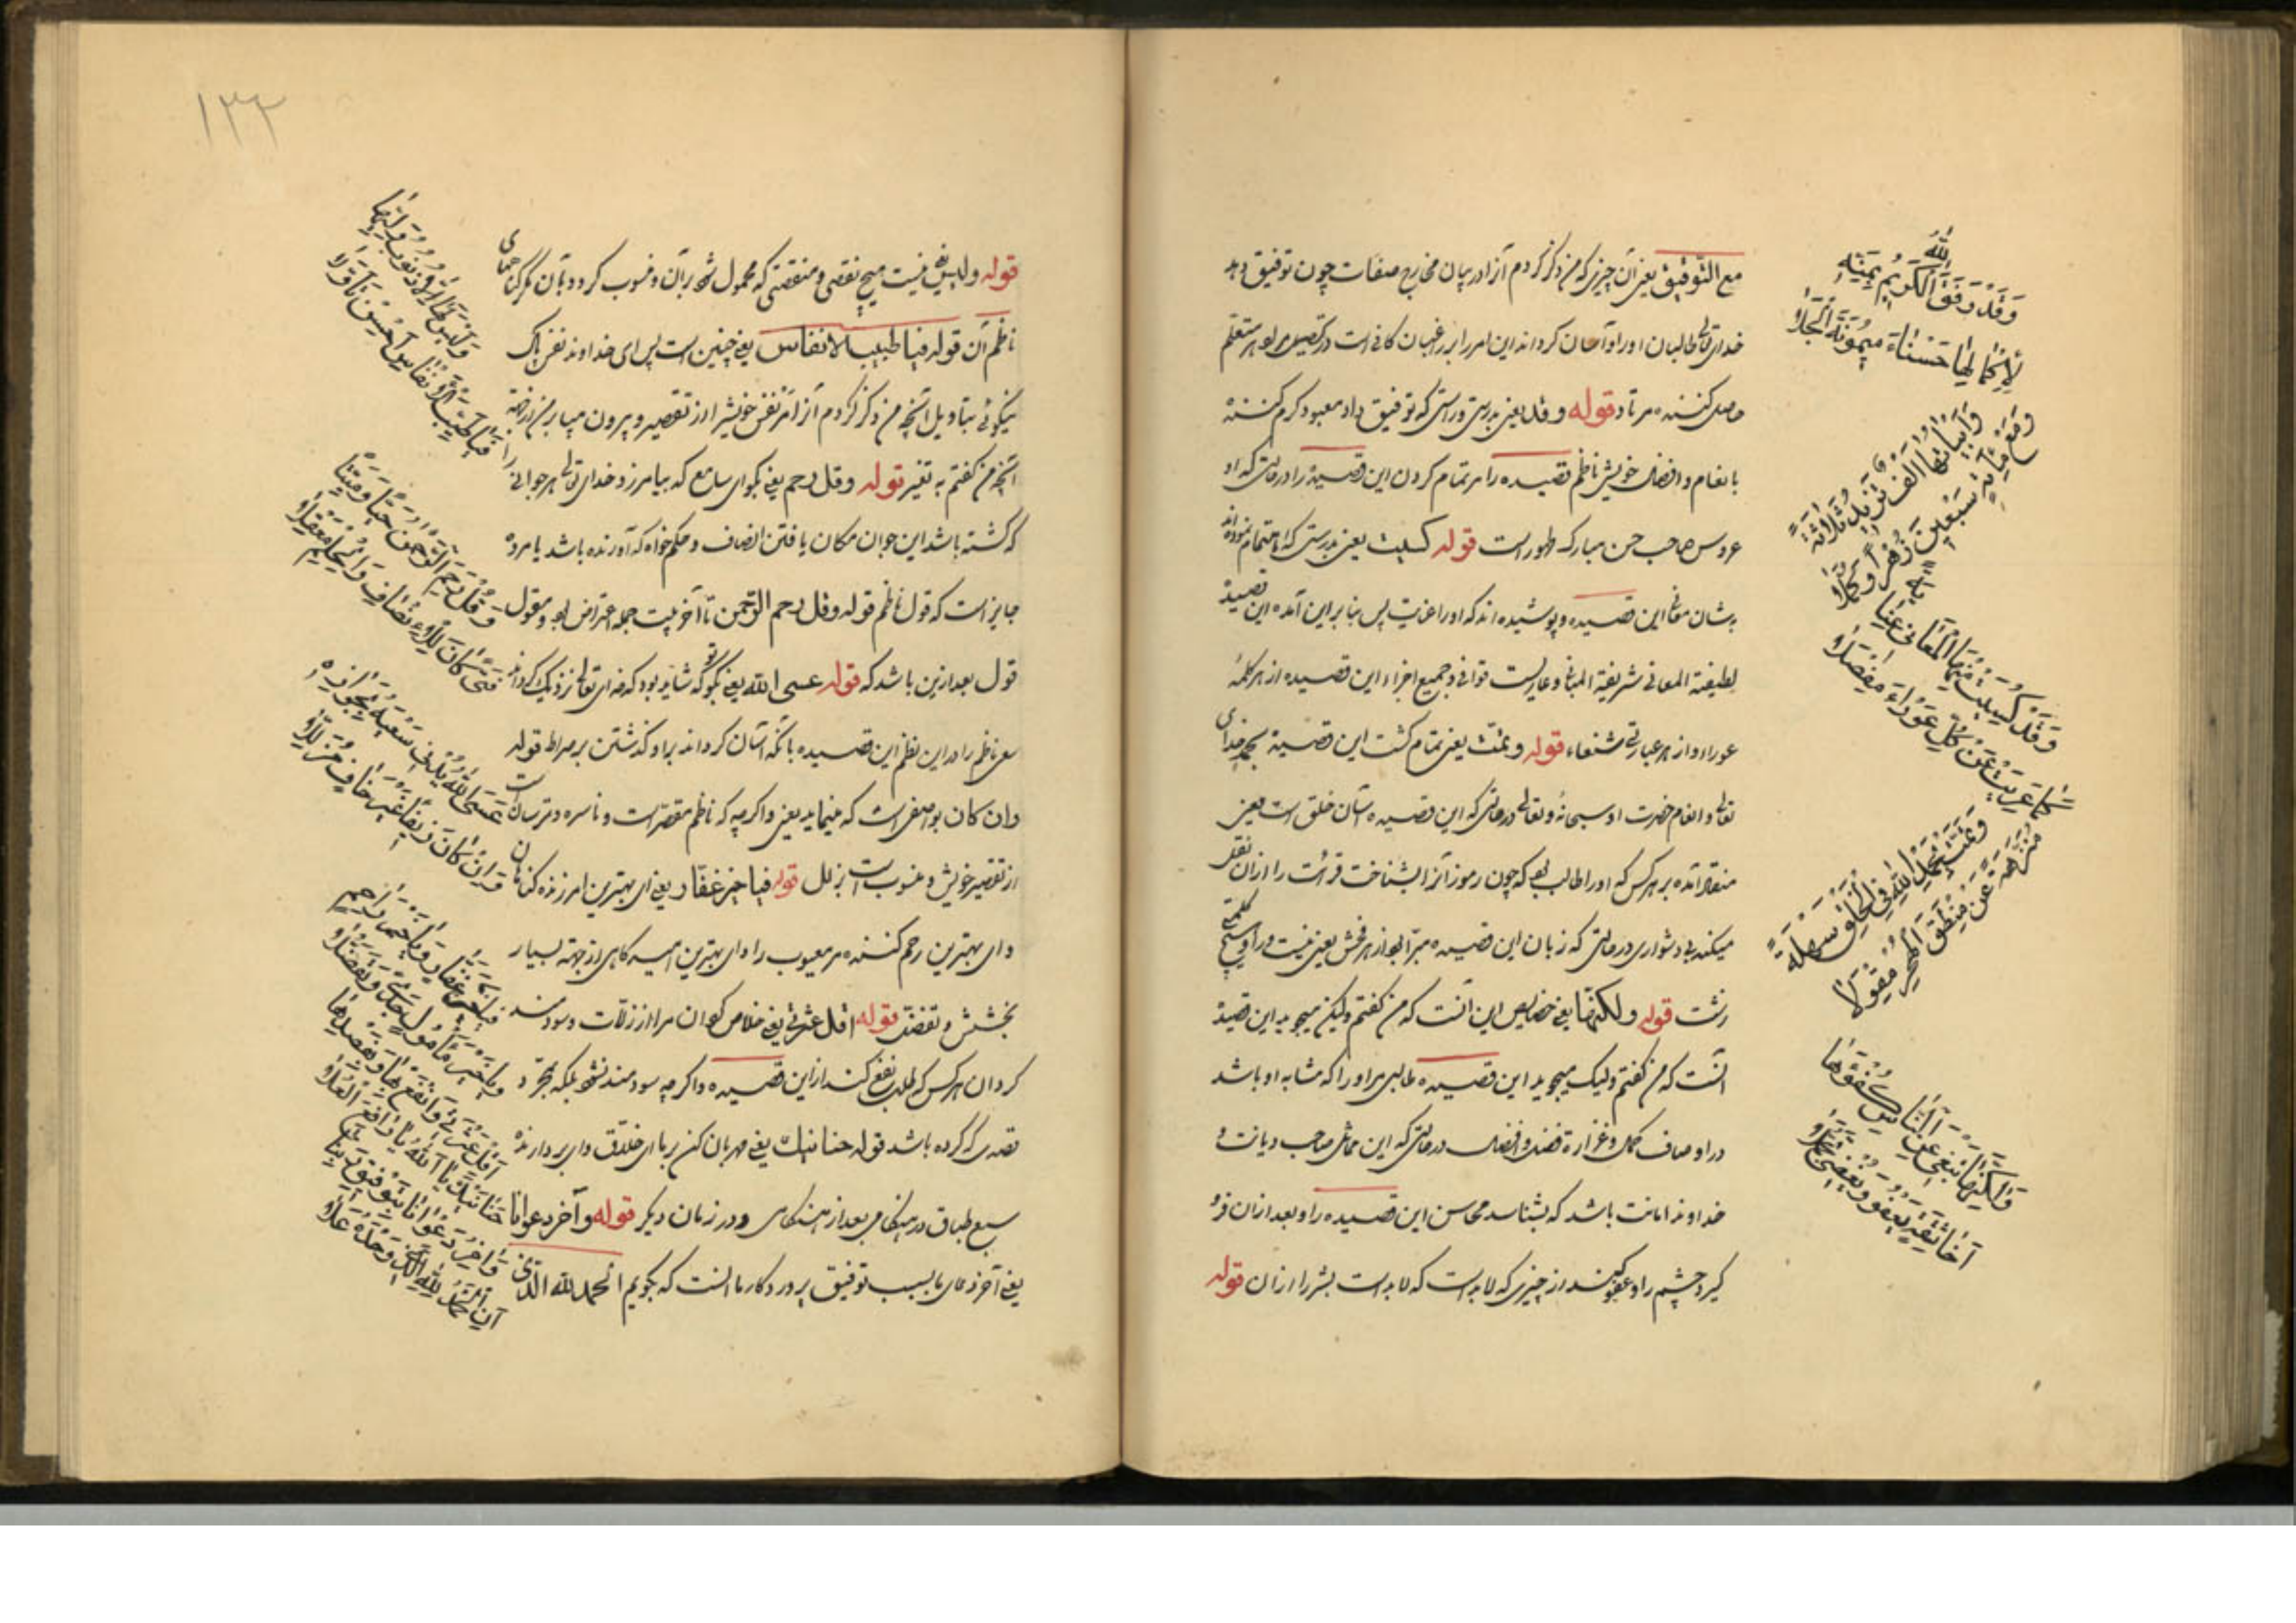 مع التوفیق یعنی آن چیزی که من ذکر کردم آنرا در بیان مخارج صفات چون توفیق دهد
خدای تعالی طالبان اورا و آسان کرداند این امر را بر راغبان کافی است در تحصیل مر او هر متعلم
حاصل کننده مرتاد قوله وقد یعنی بدرستی و راستی که توفیق داد معبود کرم کننده
بانعام و افضال خویش ناظم قصیده را مر تمام کردن این قصیده را در حالتی که او
عروس صاحب حسن مبارکه ظهور است قوله کسیت یعنی بدرستی که اهتمام نموده اند
بشان معانی این قصیده و پوشیده اند که اورا عنایت پس بنا برین آمده این قصیده
لطیفة المعانی شریفة المبانی و عاریست قوافی و جمیع اجزاء این قصیده از هر کلمهٔ
عوراء و از هر عبارتی شنعاء قوله وتمّت یعنی تمام کشت این قصیده بحمد خدای
تعالی و انعام حضرت او سبحانه و تعالی در حالتی که این قصیده آسان خلق است یعنی
منقاد آمده بر هر کس که اورا طالب بود که چون رموز آنرا بشناخت قرائت را از آن نقل
میکند بی دشواری در حالتی که زبان این قصیده مبرّا بود از هر فحش یعنی نیست در او هیچ کلمهٔ
زشت قوله ولکنها یعنی خصایص این آنست که من کفتم ولیکن میجوید این قصیده
آنست که من کفتم ولیک میجوید این قصیده طالبی مر اورا که مشابه او باشد
در اوصاف کمال و غزارة فضل و افضال در حالتی که این مماثل صاحب دیانت و
خداوند امانت باشد که بشناسد محاسن این قصیده را و بعد از آن فرو
کیرد چشم را و عفو کند از چیزی که لابد است که لابد است بشر را از آن قوله
وَقَدْ وَفَّقَ اللهُ الْكَرِيمُ بِمَنِّهِ
لِإِكْمَالِهَا حَسْنَاءَ مَيْمُونَةَ الْجِلَا
وَأَبْيَاتُهَا أَلْفٌ تَزِيدُ ثَلَاثَةً
وَمَعْ مِائَةٍ سَبْعِينَ زُهْرًا وَكُمَّلَا
وَقَدْ كُسِيَتْ مِنْهَا الْمَعَانِي عِنَايَةً
كَمَا عَرِيَتْ عَنْ كُلِّ عَوْرَاءَ مِفْصَلَا
وَتَمَّتْ بِحَمْدِ اللهِ فِي الْخَلْقِ سَهْلَةً
مُنَزَّهَةً عَنْ مَنْطِقِ الْهُجْرِ مِقْوَلَا
وَلَكِنَّهَا تَبْغِي مِنَ النَّاسِ كُفْؤَهَا
أَخَا ثِقَةٍ يَعْفُو وَيُغْضِي تَجَمُّلَا
١٣٢
قوله ولیس یعنی نیست هیچ نقصی و منقصتی که محمول شود بر آن و منسوب کردد بآن مکر کناهای
ناظم آن قوله فیا طیب الانفاس یعنی چنین است پس ای خداوند نفس پاک
نیکوئی بتاویل آنچه من ذکر کردم آنرا
آنچه من کفتم به تغیر قوله وقل رحم یعنی بکو ای سامع که بیامرزد خدای تعالی هر جوانی را
که کشته باشد این جوان مکان یافتن انصاف و حکم خواه که آن زنده باشد یا مرده
جایز است که قول ناظم قوله وقل رحم الرحمن تا آخر بیت جمله اعتراض بود و مقول
قول بعد ازین باشد که قوله عسی الله یعنی بکو تو که شاید بود که خدای تعالی نزدیک کرداند
سعی ناظم را در این نظم این قصیده بآنکه آسان کرداند براو کذشتن بر صراط قوله
وان کان یعنی واکرچه که ناظم مقصر است و ناسره و ترسان است
از تقصیر خویش و منسوب است بزلل قوله فیا خیر غفار یعنی ای بهترین امرزنده کناهان
وای بهترین رحم کننده مر معیوب را وای بهترین امیدکاهی از جهة بسیار
بخشش و تفضل قوله اقل عثرتی یعنی خلاص کردان مرا از زلات و سودمند
کردان هر کس که طلب نفع کند از این قصیده واکرچه سودمند نشود بلکه بمجرّد
قصدی که کرده باشد قوله حنانیک یعنی مهربان کن بر ما ای خلاق وای بردارنده
سبع طباق در هنکامی بعد از هنکامی و در زمان دیکر قوله وآخر دعوانا
یعنی آخر دعای ما بسبب توفیق پروردکار ما آنست که بکویم الحمد لله الذی
وَلَيْسَ لَهَا إِلَّا ذُنُوبُ وَلِيِّهَا
فَيَا طَيِّبَ الْأَنْفَاسِ أَحْسِنْ تَأَوُّلَا
وَقُلْ رَحِمَ الرَّحْمَنُ حَيًّا وَمَيِّتًا
فَتًى كَانَ لِلْإِنْصَافِ وَالْحِلْمِ مَعْقِلَا
عَسَى اللهُ يُدْنِي سَعْيَهُ بِجَوَازِهِ
وَإِنْ كَانَ زَيْفًا غَيْرَ خَافٍ مُزَلَّلَا
فَيَا خَيْرَ غَفَّارٍ وَيَا خَيْرَ رَاحِمٍ
وَيَا خَيْرَ مَأْمُولٍ جَدًا وَتَفَضُّلَا
أَقِلْ عَثْرَتِي وَانْفَعْ بِهَا وَبِقَصْدِهَا
حَنَانَيْكَ يَا اللهُ يَا رَافِعَ الْعُلَا
وَآخِرُ دَعْوَانَا بِتَوْفِيقِ رَبِّنَا
أَنِ الْحَمْدُ لِلهِ الَّذِي وَحْدَهُ عَلَا